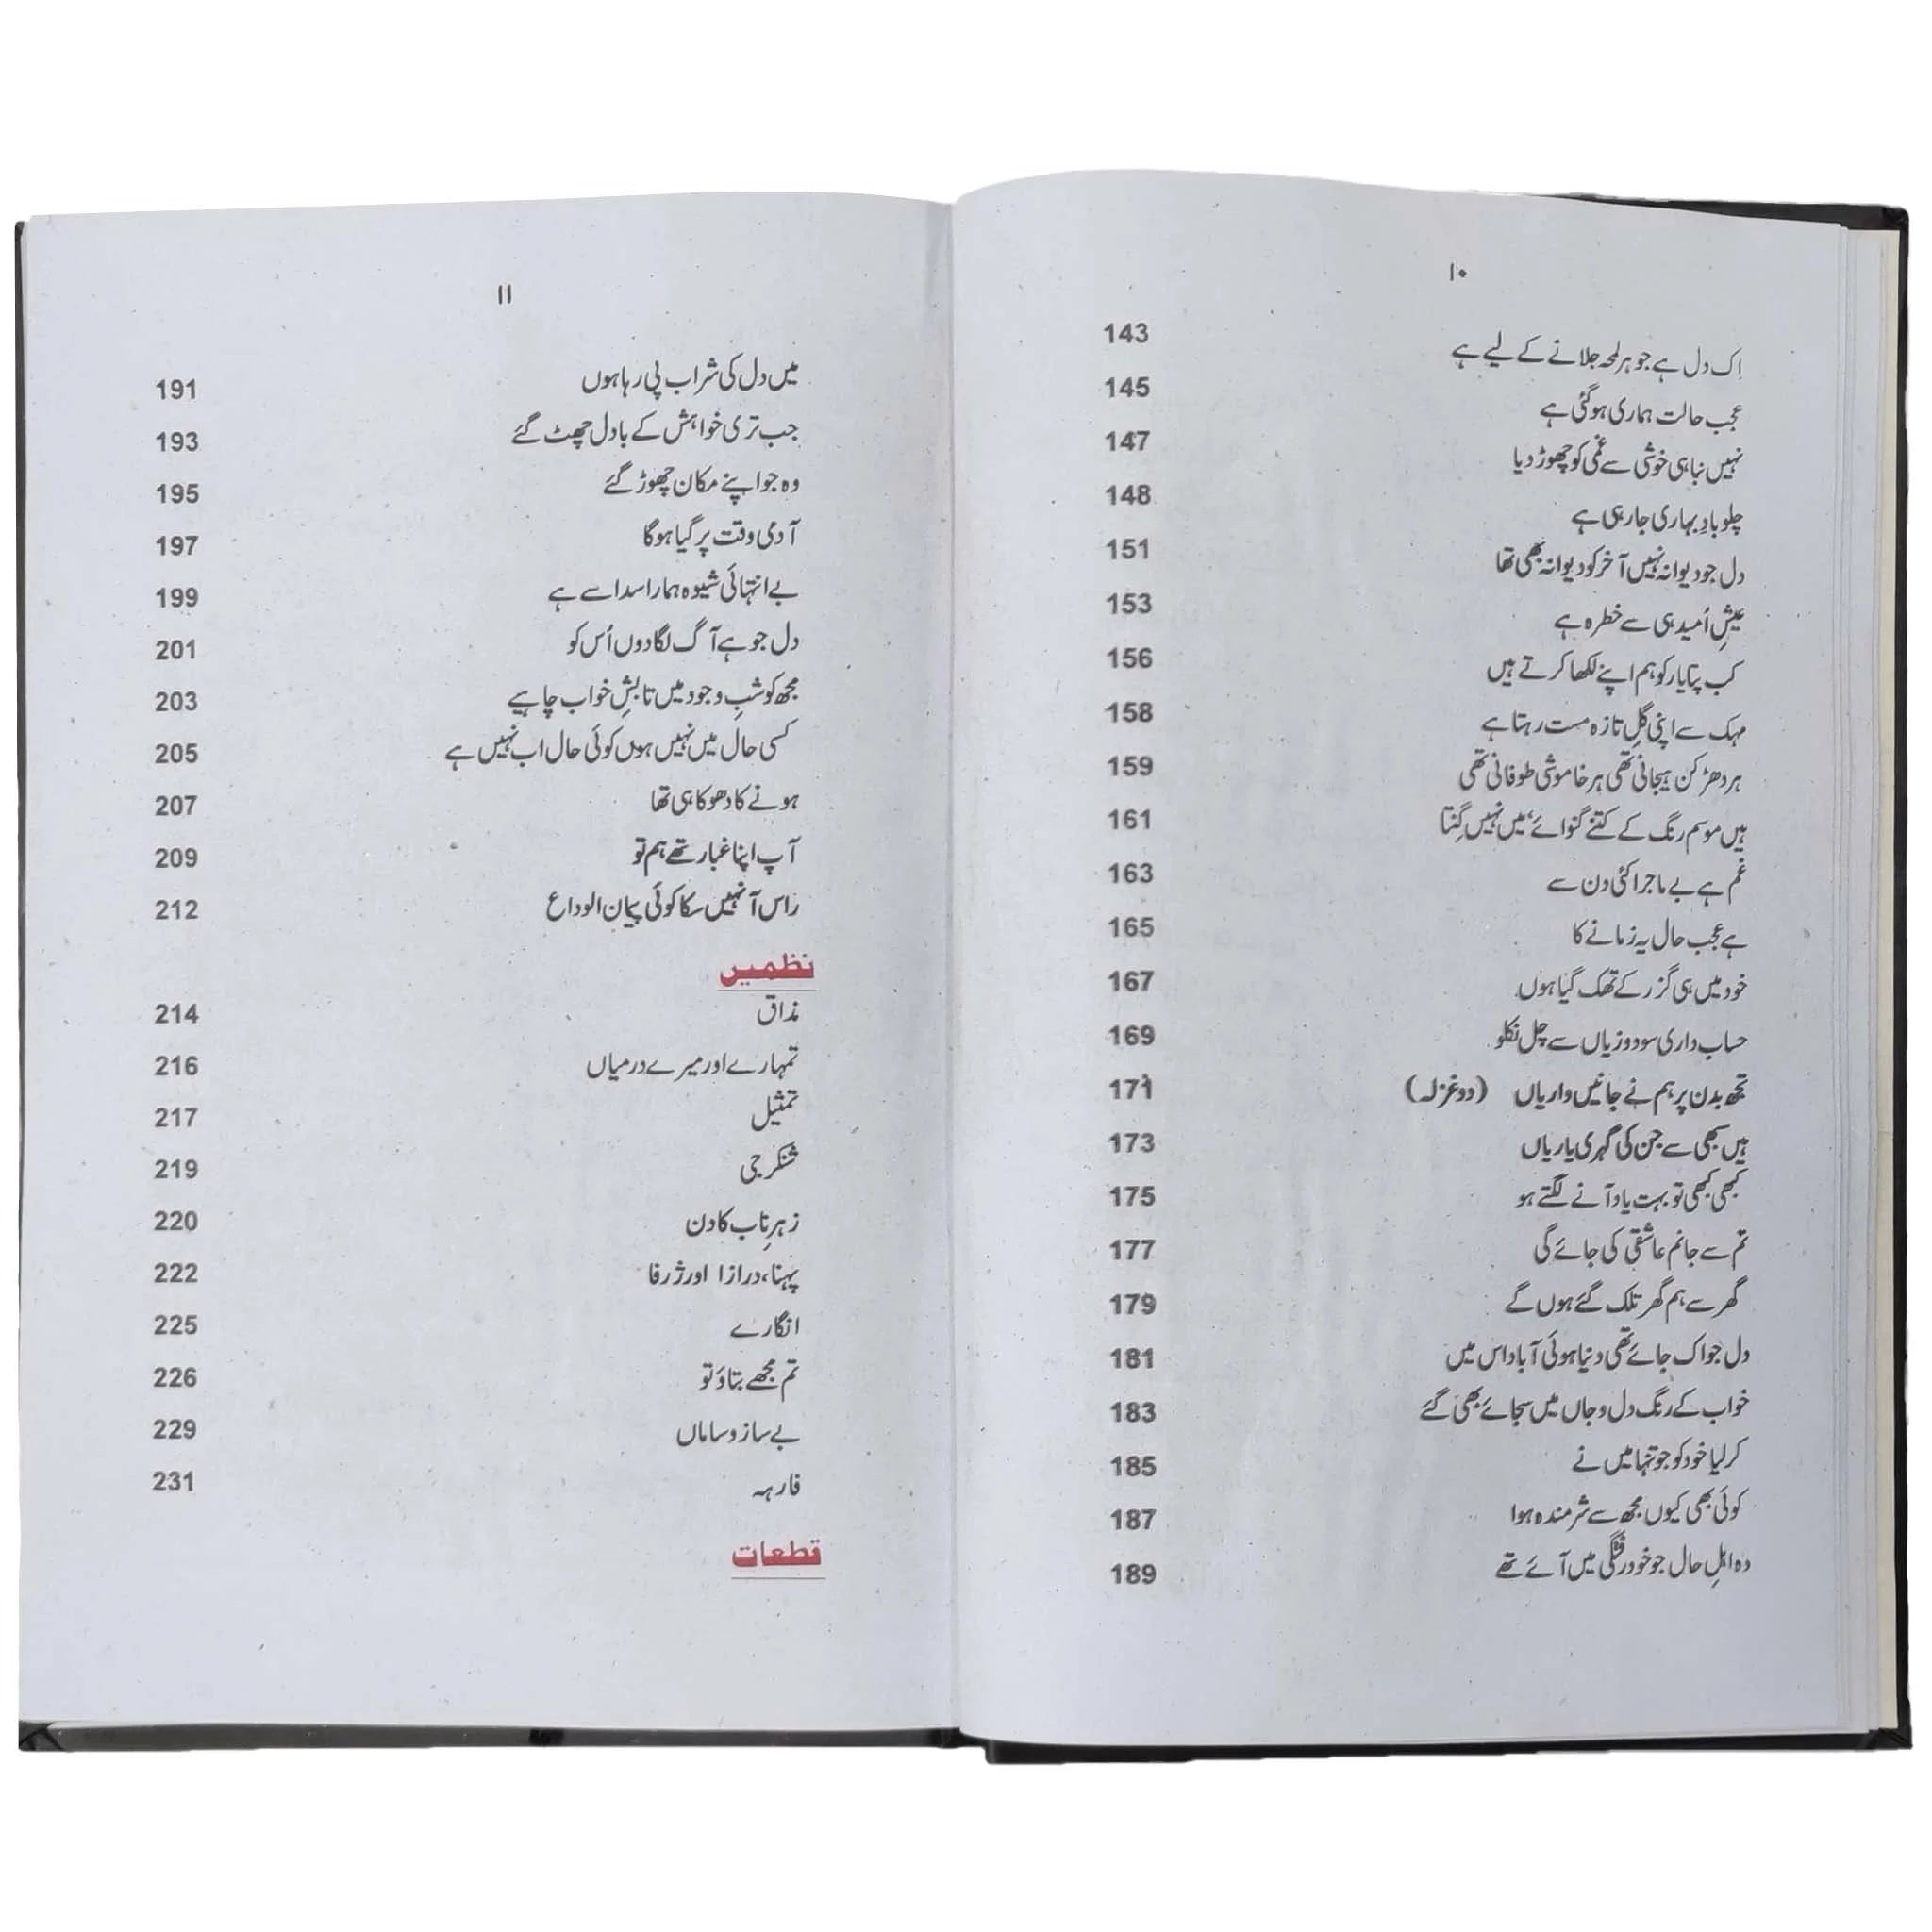 ۱۰
اِک دل ہے جو ہر لمحہ جلانے کے لیے ہے 143
عجب حالت ہماری ہوگئی ہے 145
نہیں نباہی خوشی سے غمی کو چھوڑ دیا 147
چلو بادِ بہاری جارہی ہے 148
دل جو دیوانہ نہیں آخر کو دیوانہ بھی تھا 151
عیشِ اُمید ہی سے خطرہ ہے 153
کب پتا یار کو ہم اپنے لکھا کرتے ہیں 156
مہک سے اپنی گلِ تازہ مست رہتا ہے 158
ہر دھڑکن ہیجانی تھی ہر خاموشی طوفانی تھی 159
ہیں موسم رنگ کے کتنے گنوائے، میں نہیں گِنتا 161
غم ہے بے ماجرا کئی دن سے 163
ہے عجب حال یہ زمانے کا 165
خود میں ہی گزر کے تھک گیا ہوں 167
حساب داری سود و زیاں سے چل نکلو 169
تجھ بدن پر ہم نے جانیں واریاں (دو غزلہ) 171
ہیں سبھی سے جن کی گہری یاریاں 173
کبھی کبھی تو بہت یاد آنے لگتے ہو 175
تم سے جانم عاشقی کی جائے گی 177
گھر سے ہم گھر تلک گئے ہوں گے 179
دل جو اک جائے تھی دنیا ہوئی آباد اس میں 181
خواب کے رنگ دل و جاں میں سجائے بھی گئے 183
کر لیا خود کو جو تنہا میں نے 185
کوئی بھی کیوں مجھ سے شرمندہ ہوا 187
وہ اہلِ حال جو خود رفتگی میں آئے تھے 189
۱۱
میں دل کی شراب پی رہا ہوں 191
جب تری خواہش کے بادل چھٹ گئے 193
وہ جو اپنے مکان چھوڑ گئے 195
آدمی وقت پر گیا ہوگا 197
بے انتہائی شیوہ ہمارا سدا سے ہے 199
دل جو ہے آگ لگا دوں اُس کو 201
مجھ کو شبِ وجود میں تابشِ خواب چاہیے 203
کسی حال میں نہیں ہوں کوئی حال اب نہیں ہے 205
ہونے کا دھوکا ہی تھا 207
آپ اپنا غبار تھے ہم تو 209
راس آ نہیں سکا کوئی پیمان الوداع 212
نظمیں
مذاق 214
تمہارے اور میرے درمیاں 216
تمثیل 217
شنکر جی 219
زہرِ ناب کا دن 220
پہنا، درازا اور ژرفا 222
انگارے 225
تم مجھے بتاؤ تو 226
بے ساز و ساماں 229
فارہہ 231
قطعات